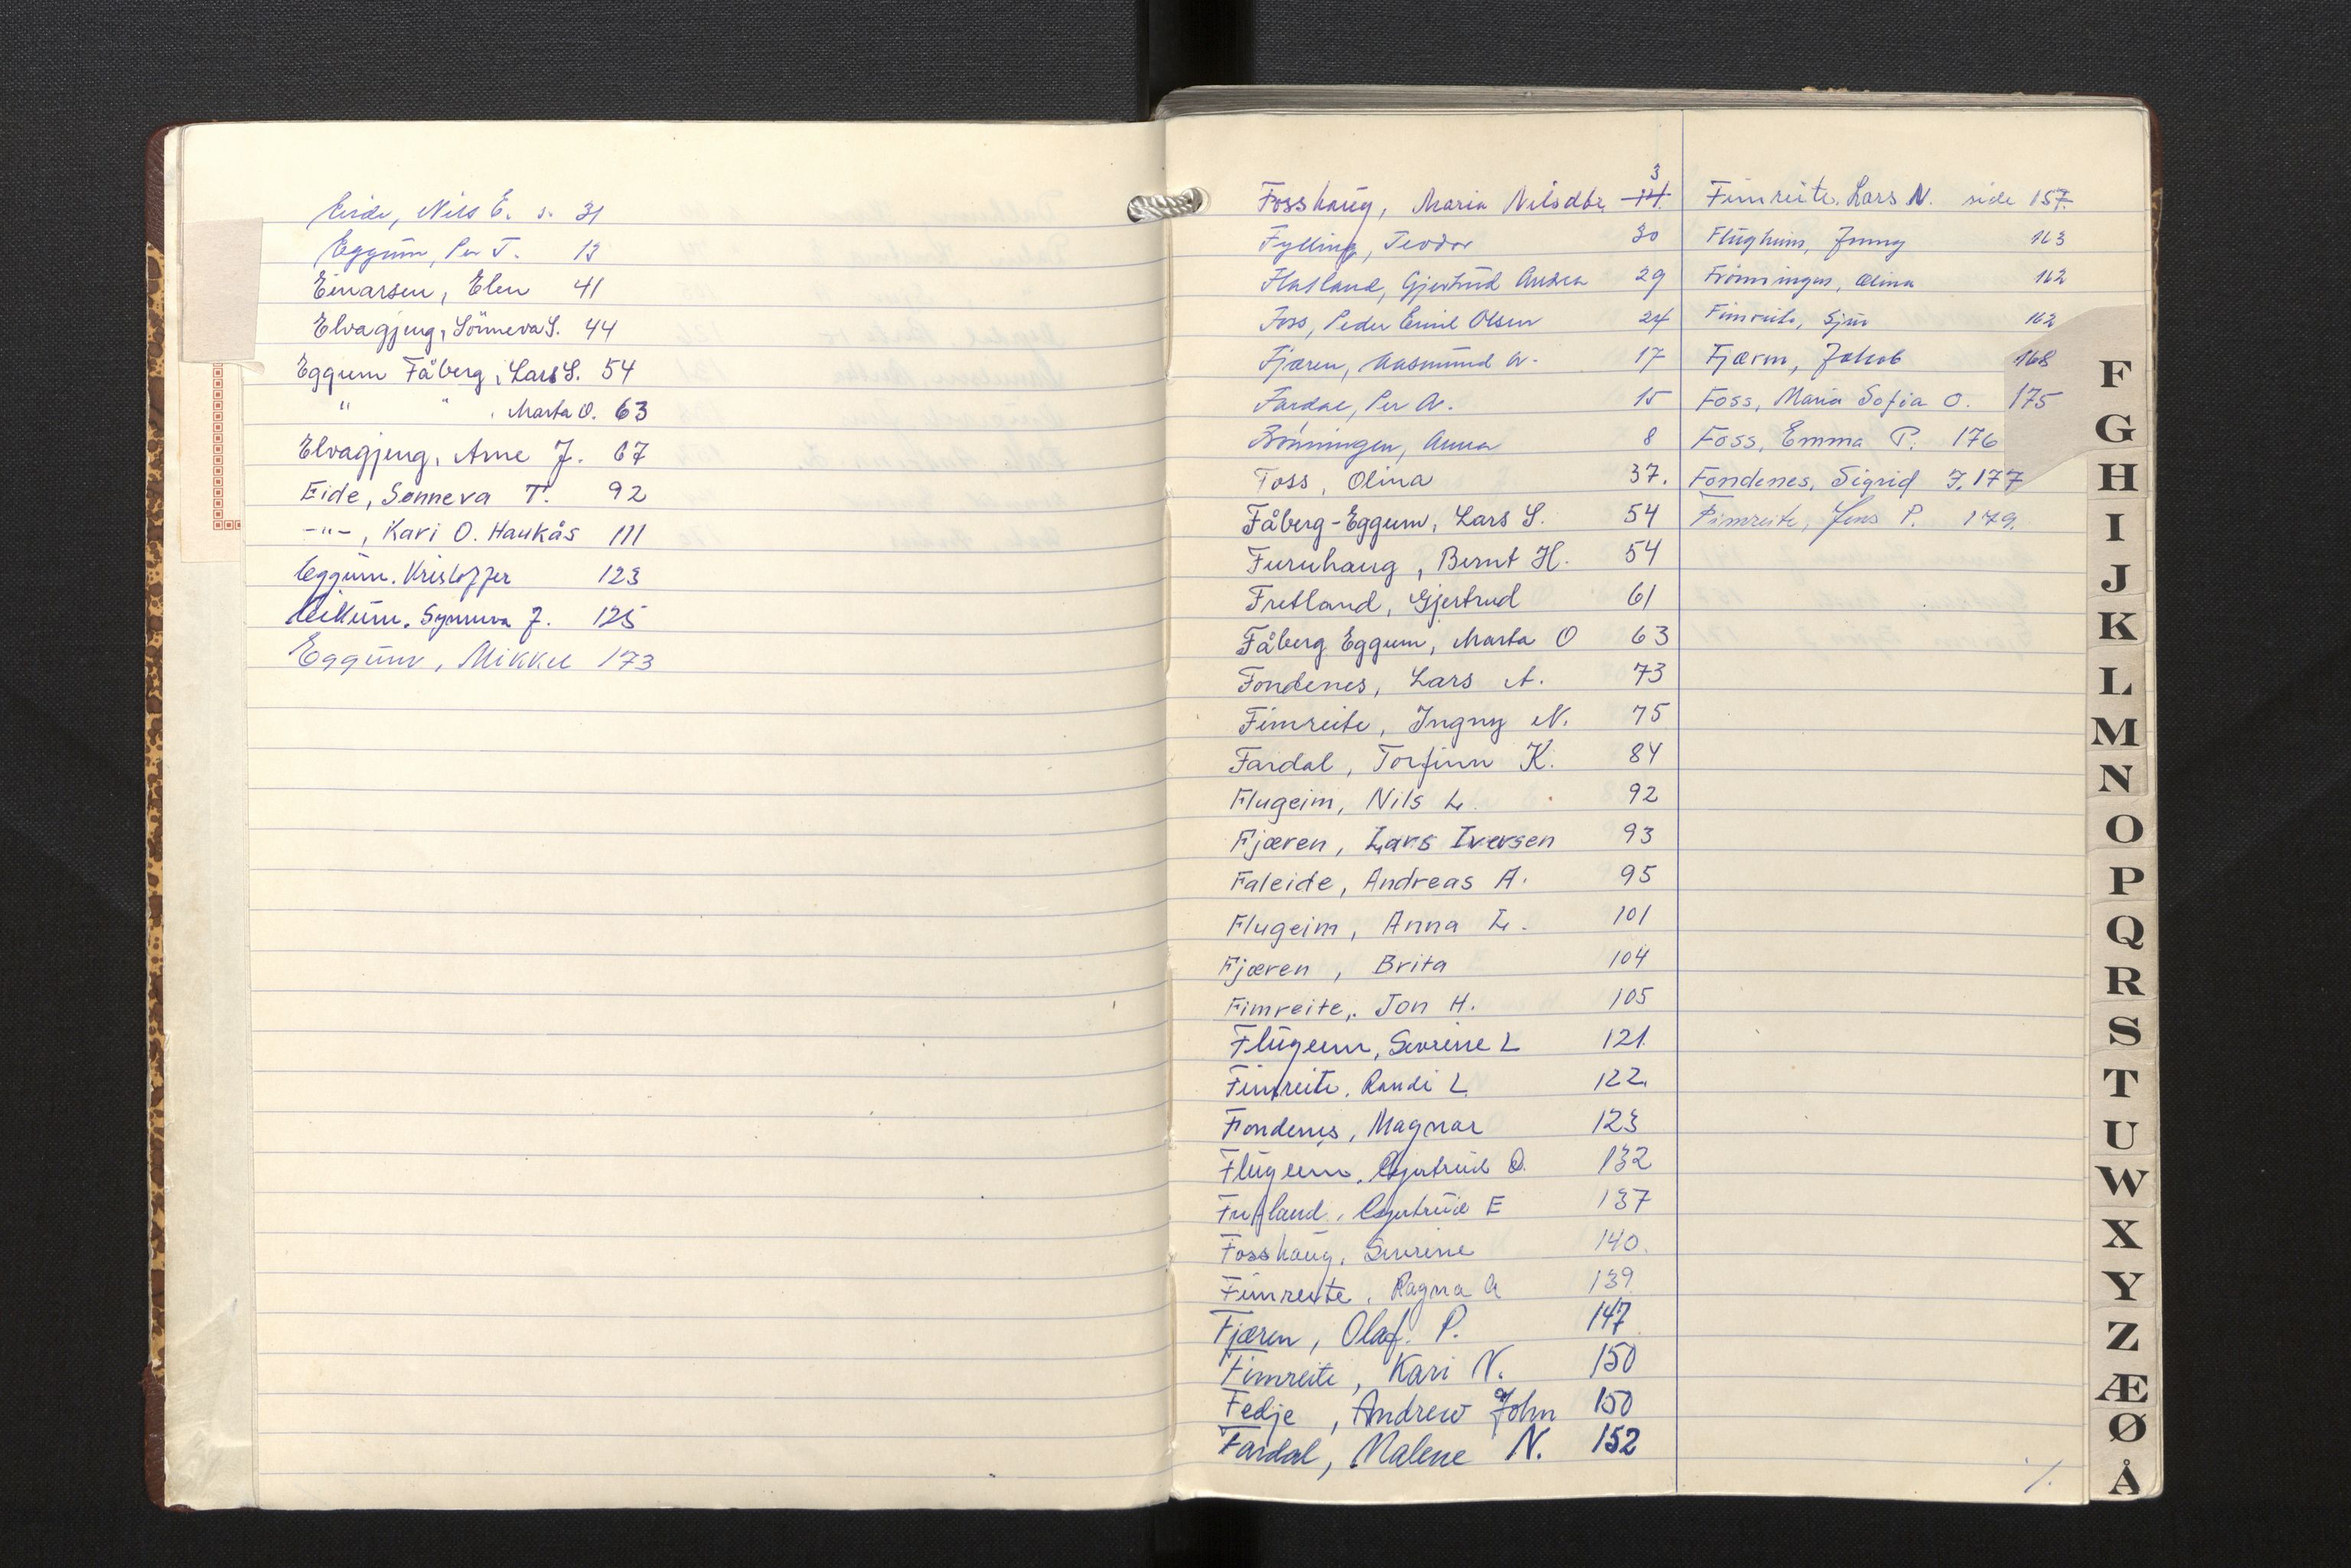 Eide, Nils E. s. 31
Eggum, Per J. 13
Einarsen, Elen 41
Elvagjeng, Sønneva S. 44
Eggum Fåberg, Lars S. 54
" " , Marta O. 63
Elvagjeng, Arne J. 67
Eide, Sønneva T. 92
-"-, Kari O. Haukås 111
Eggum. Kristoffer 123
Synneva J. 125
Eggum, Mikkel 173
Fosshaug, Maria Nilsdtr. 14 3
Fylling, Teodor 30
Flatland, Gjertrud Andrea 29
Foss, Peder Emil Olsen 24
Fjæren, Aasmund A. 17
Fardal, Per A. 15
Anna 8
Foss, Olina 37.
Fåberg-Eggum, Lars S. 54
Furuhaug, Bernt H. 54
Fretland, Gjertrud 61
Fåberg Eggum, Marta O 63
Fondenes, Lars A. 73
Fimreite, Ingny N. 75
Fardal, Torfinn K. 84
Flugeim, Nils L. 92
Fjæren, Lars Iversen 93
Faleide, Andreas A. 95
Flugeim, Anna L. 101
Fjæren, Brita 104
Fimreite, Jon H. 105
Flugeim, Severine L 121.
Fimreite. Randi L 122.
Fondenes, Magnar 123
Flugeim. Gjertrud O. 132
Fretland, Gjertrud E 137
Fosshaug, Severine 140.
Fimreite, Ragna A 139
Fjæren, Olaf. P. 147
Fimreite, Kari N. 150
Fedje, Andrew John 150
Fardal, Malene N. 152
Fimreite, Lars N. side 157.
Flugheim, Jenny 163
Frønningen, Olina 162
Fimreite, Sjur 162
Fjærn, Jakob 168
Foss, Maria Sofia O. 175
Foss, Emma P. 176
Fondenes, Sigrid J. 177
Fimreite, Jens P. 179.
/.
F
G
H
I
J
K
L
M
N
O
P
Q
R
S
T
U
W
X
Y
Z
Æ
Ø
Å